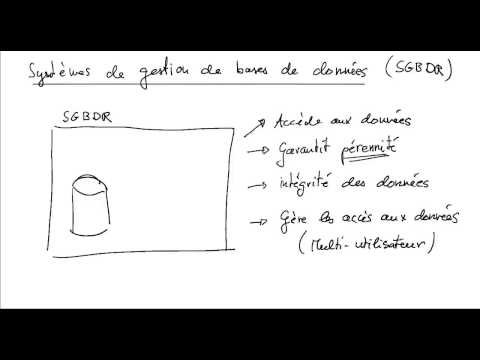 Systèmes de gestion de bases de données (SGBDR)
SGBDR
Accède aux données
Garantit pérennité
intégrité des données
Gère les accès aux données
(Multi-utilisateur)